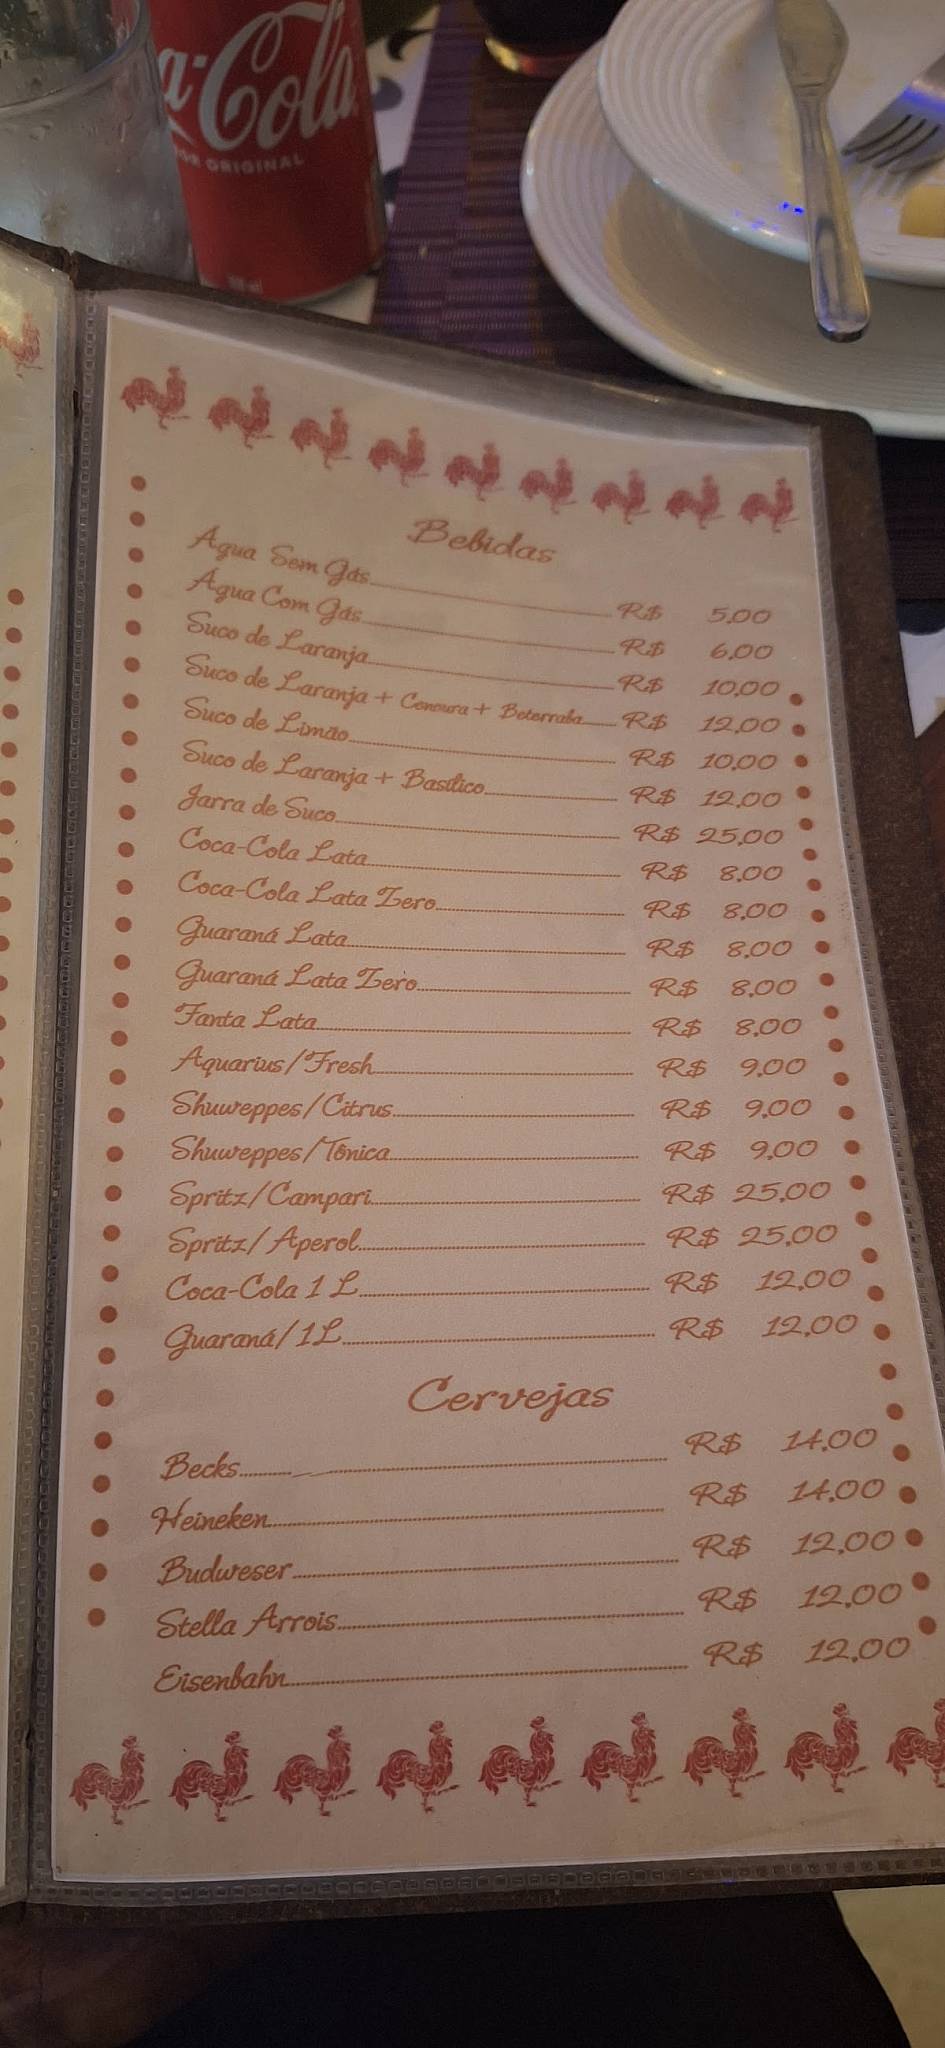 a-Cola
OR ORIGINAL
Bebidas
Água Sem Gás R$ 5,00
Água Com Gás R$ 6,00
Suco de Laranja R$ 10,00
Suco de Laranja + Cenoura + Beterraba R$ 12,00
Suco de Limão R$ 10,00
Suco de Laranja + Basílico R$ 12,00
Jarra de Suco R$ 25,00
Coca-Cola Lata R$ 8,00
Coca-Cola Lata Zero R$ 8,00
Guaraná Lata R$ 8,00
Guaraná Lata Zero R$ 8,00
Fanta Lata R$ 8,00
Aquarius/Fresh R$ 9,00
Shuweppes/Citrus R$ 9,00
Shuweppes/Tônica R$ 9,00
Spritz/Campari R$ 25,00
Spritz/Aperol R$ 25,00
Coca-Cola 1 L R$ 12,00
Guaraná/1L R$ 12,00
Cervejas
Becks R$ 14,00
Heineken R$ 14,00
Budweser R$ 12,00
Stella Arrois R$ 12,00
Eisenbahn R$ 12,00